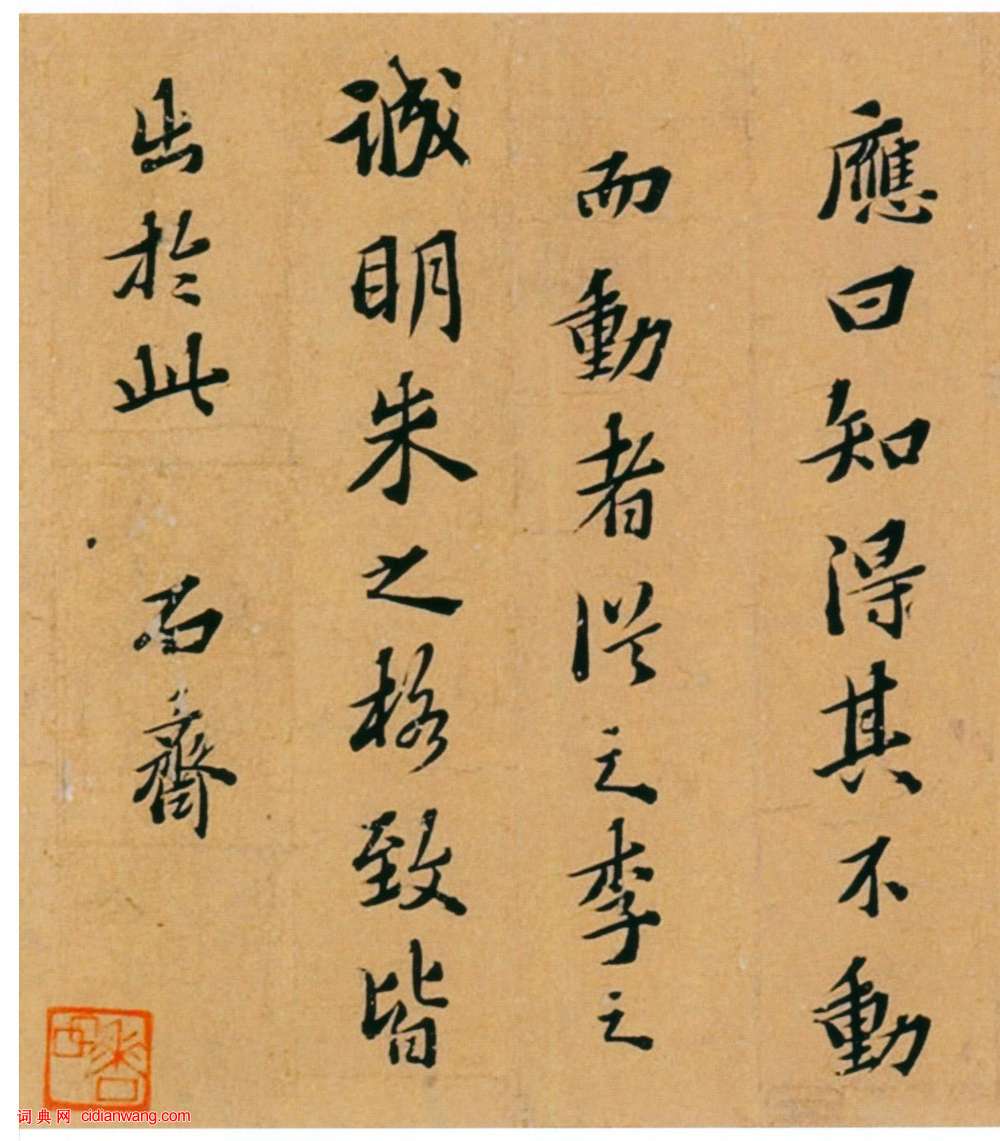 應曰知得其不動
而動者從之李之
誠明朱之格致皆
出於此
石齋
词典网 cidianwang.com